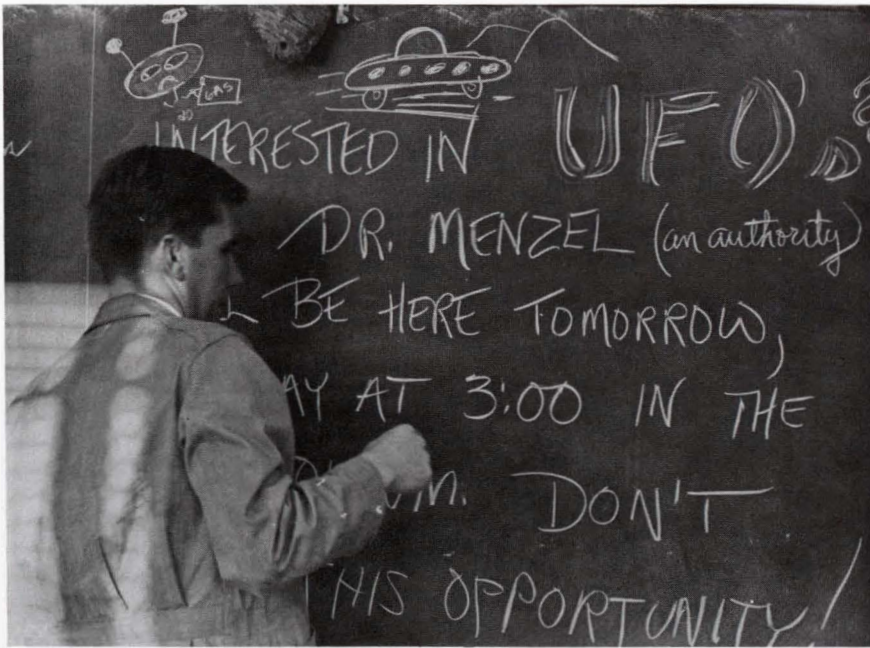 GAS
INTERESTED IN UFO'S?
DR. MENZEL (an authority)
BE HERE TOMORROW,
AY AT 3:00 IN THE
UM. DON'T
THIS OPPORTUNITY!